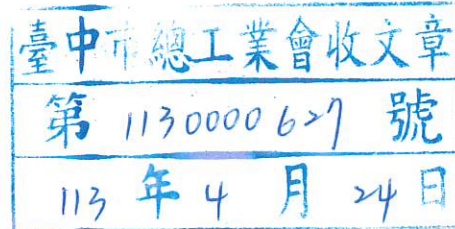 臺中市總工業會收文章
第 1130000627 號
113 年 4 月 24 日